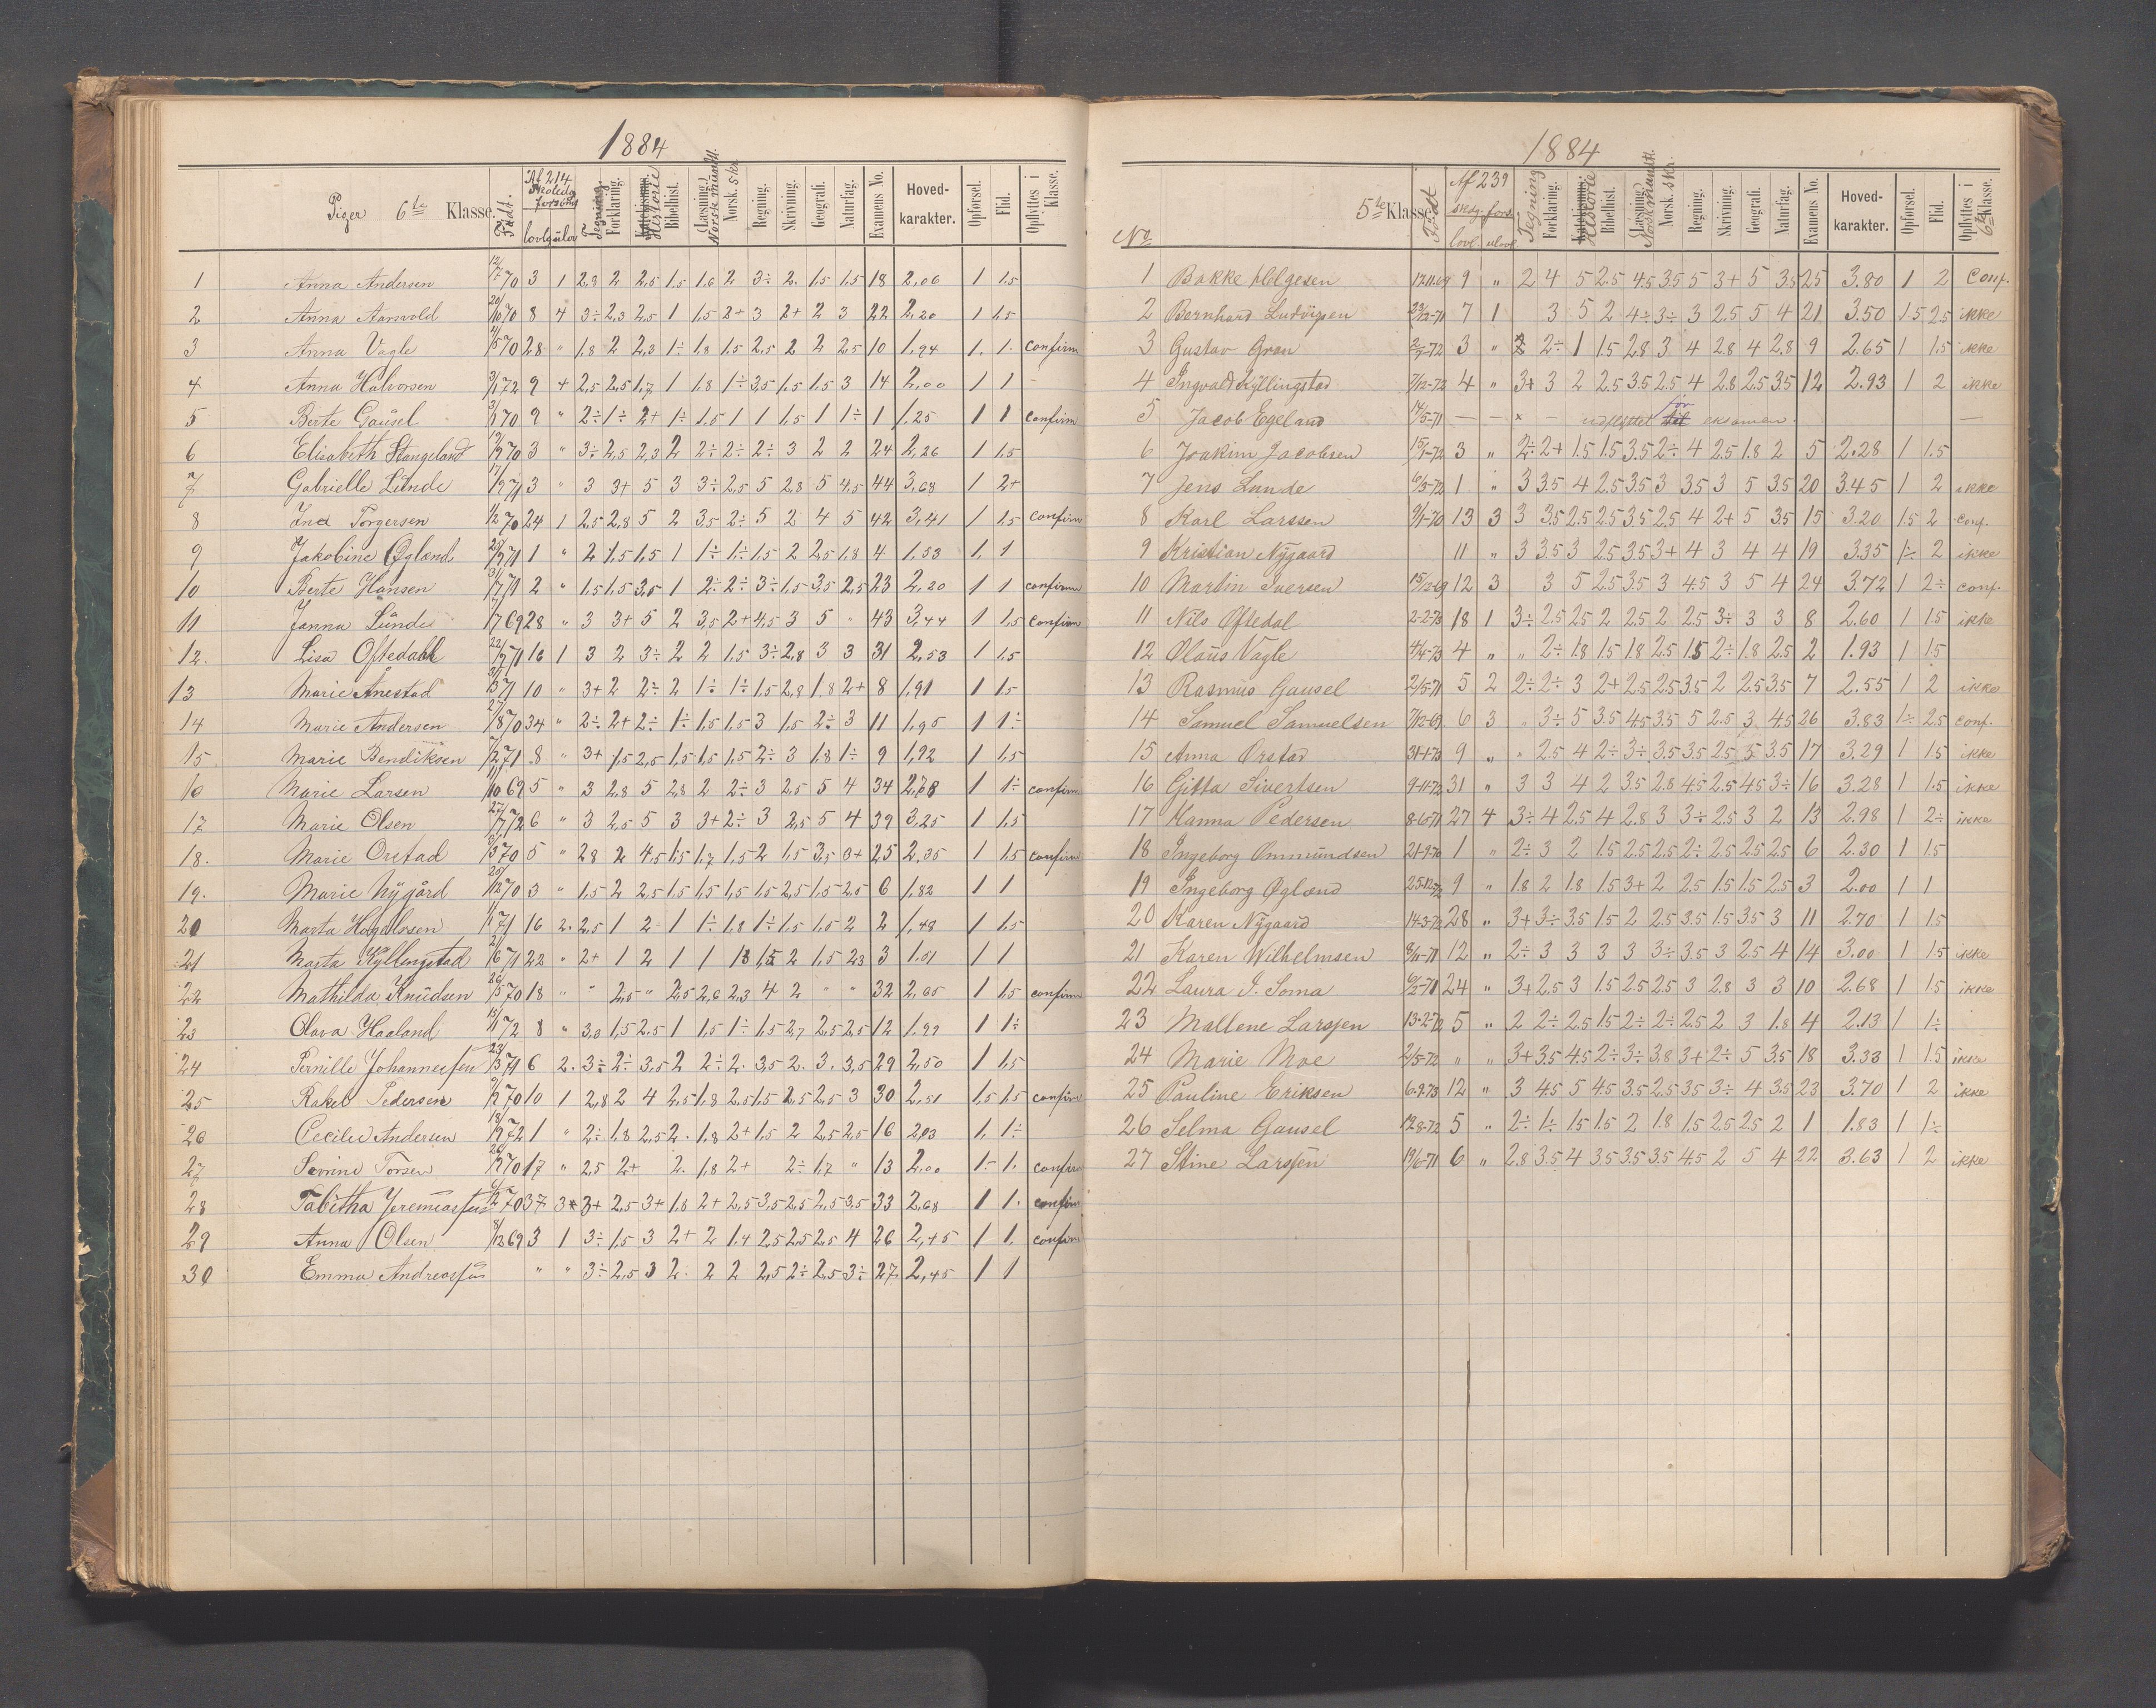 1884
Piger 6te Klasse. Født. Af 214 Skoledg forsømt lovl. ulov Tegning Forklaring. Historie Bibelhist. (Læsning) Norsk mundtl. Norsk. skr. Regning. Skrivning. Geografi. Naturfag. Examens No. Hoved-karakter. Opførsel. Flid. Opflyttes i Klasse.
1 Anna Andersen 12/7 70 3 1 2,3 2 2,5 1,5 1,6 2 3÷ 2. 1,5 1,5 18 2,06 1 1,5
2 Anna Aarsvold 20/10 70 8 4 3÷ 2,3 2,5 1 1,5 2+ 3 2+ 2 3 22 2,20 1 1,5
3 Anna Vagle 4/5 70 28 " 1,8 2 2,3 1÷ 1,8 1,5 2,5 2 2 2,5 10 1,94 1. 1. confirm
4 Anna Halvorsen 3/1 72 9 + 2,5 2,5 1,7 1 1,8 1÷ 3,5 1,5 1,5 3 14 2,00 1 1 -
5 Berte Gausel 3/1 70 9 " 2÷ 1÷ 2+ 1÷ 1,5 1 1 1,5 1 1÷ 1 1,25 1 1 confirm
6 Elisabeth Stangeland 19/9 70 3 " 3÷ 2,5 2,3 2 2÷ 2÷ 2÷ 3 2 2 24 2,26 1 1,5
7 Gabrielle Lunde 17/9 71 3 " 3 3+ 5 3 3÷ 2,5 5 2,8 5 4,5 44 3,68 1 2+
8 Ina Torgersen 1/2 70 24 1 2,5 2,8 5 2 3,5 2÷ 5 2 4 5 42 3,41 1 1,5 confirm
9 Jakobine Øgland 25/9 71 1 " 2 1,5 1,5 1 1÷ 1÷ 1,5 2 2,5 1,8 4 1,53 1, 1
10 Berte Hansen 31/7 71 2 " 1,5 1,5 3,5 1 2÷ 2÷ 3÷ 1,5 3,5 2,5 23 2,20 1 1 confirm
11 Janna Lunde 1/7 69 28 " 3 3+ 5 2 3,5 2+ 4,5 3 5 " 43 3,44 1 1,5 confirm
12. Lisa Oftedahl 22/9 71 16 1 3 2 3÷ 2 2 1,5 3÷ 2,8 3 3 31 2,53 1 1,5
13 Marie Anestad 31/3 71 10 " 3+ 2 2÷ 2 1÷ 1÷ 1,5 2,8 1,8 2+ 8 1,91 1 1,5
14 Marie Andersen 27/8 70 34 " 2÷ 2+ 2÷ 1÷ 1,5 1,5 3 1,5 2÷ 3 11 1,95 1 1÷
15 Marie Bendiksen 7/2 71 8 " 3+ 1,5 2,5 1,5 1,5 1,5 2÷ 3 1,8 1÷ 9 1,92 1 1,5
16 Marie Larsen 11/10 69 5 " 3 2,8 5 2,8 2 2÷ 3 2,5 5 4 34 2,78 1 1÷ confirm
17 Marie Olsen 27/7 72 6 " 3 2,5 5 3 3+ 2÷ 3 2,5 5 4 39 3,25 1 1,5
18. Marie Orstad 9/3 70 5 " 2,8 2 4,5 1,5 1,7 1,5 2 1,5 3,5 3+ 25 2,35 1 1,5 confirm
19. Marie Nygård 25/12 70 3 " 1,5 2 2,5 1,5 1,5 1,5 1,5 2,5 1,5 2,5 6 1,82 1 1
20 Marta Hognelosen 1/1 71 16 2. 2,5 1 2 1 1÷ 1,8 1÷ 1,5 1,5 2 2 1,48 1 1,5
21 Marta Kyllingstad 21/6 71 22 " 2+ 1 2 1 1 1,8 1,5 2 1,5 2,3 3 1.51 1 1
22 Mathilda Knudsen 26/5 70 18 " " 2,5 " 2,5 2,6 2,3 4 2 " " 32 2,65 1 1,5 confirm
23 Olava Haaland 15/1 72 8 " 3,0 1,5 2,5 1 1,5 1÷ 1,5 2,7 2,5 2,5 12 1,97 1 1÷
24 Pernille Johannessen 23/3 71 6 2. 3÷ 2÷ 3,5 2 2÷ 2. 3,5 2. 3. 3,5 29 2,50 1 1,5
25 Rakel Pedersen 9/2 70 10 1 2,8 2 4 2,5 1,8 2,5 1,5 2,5 2,5 3 30 2,51 1,5 1,5 confirm
26 Cecilie Andersen 18/9 72 1 " 2÷ 1,8 2,5 2. 1,8 2+ 1,5 2 2,5 2,5 16 2,03 1, 1÷
27 Serine Torsen 26/12 70 17 " 2,5 2+ 2. 1,8 2+ 2÷ 1,7 " 13 2,00 1÷ 1. confirm
28 Tabitha Jeremiassen 4/2 70 37 3 3+ 2,5 3+ 1,8 2+ 2,5 3,5 2,5 2,5 3,5 33 2,68 1 1. confirm
29 Anna Olsen 8/12 69 3 1 3÷ 1,5 3 2+ 2 1,4 2,5 2,5 2,5 4 26 2,45 1 1. confirm
30 Emma Andreassen " " 3÷ 2,5 3 2. 2 2 2,5 2÷ 2,5 3÷ 27 2,45 1 1
1884
No 5te Klasse Født Af 239 skdg. fors. lovl. ulovl Tegning Forklaring. Historie Bibelhist. (Læsning) Norsk mundtl. Norsk. skr. Regning. Skrivning. Geografi. Naturfag. Examens No. Hoved-karakter. Opførsel. Flid. Opflyttes i 6te Klasse.
1 Bakke Helgesen 17-11-69 9 " 2 4 5 2.5 4.5 3.5 5 3+ 5 3.5 25 3.80 1 2 Conf.
2 Bernhard Ludvigsen 29/12-71 7 1 3 5 2 4÷ 3÷ 3 2.5 5 4 21 3.50 1.5 2.5 ikke
3 Gustav Gran 2/7-72 3 " 2 2÷ 1 1.5 2.8 3 4 2.8 4 2.8 9 2.65 1 1.5 ikke
4 Ingvald Kyllingstad 7/12-72 4 " 3+ 3 2 2.5 3.5 2.5 4 2.8 2.5 3.5 12 2.93 1 2 ikke
5 Jacob Egeland 14/5-71 — — × - udflyttet før eksamen. —
6 Joakim Jacobsen 15/1-72 3 " 2÷ 2+ 1.5 1.5 3.5 2÷ 4 2.5 1.8 2 5 2.28 1 1.5
7 Jens Lunde 6/3-72 1 " 3 3.5 4 2.5 3.5 3 3.5 3 5 3.5 20 3.45 1 2 ikke
8 Karl Larssen 9/1-70 13 3 3 3.5 2.5 2.5 3.5 2.5 4 2+ 5 3.5 15 3.20 1.5 2 conf.
9 Kristian Nygaard 11 " 3 3.5 3 2.5 3.5 3+ 4 3 4 4 19 3.35 1÷ 2 ikke
10 Martin Iversen 15/12-69 12 3 3 5 2.5 3.5 3 4.5 3 5 4 24 3.72 1 2÷ conf.
11 Nils Oftedal 2-2-73 18 1 3÷ 2.5 2.5 2 2.5 2 2.5 3÷ 3 3 8 2.60 1 1.5 ikke
12 Olaus Vagle 4/4-73 4 " " 2÷ 1.8 1.5 1.8 2.5 1.5 2÷ 1.8 2.5 2 1.93 1 1.5
13 Rasmus Gausel 2/5-71 5 2 2÷ 2÷ 3 2+ 2.5 2.5 3.5 2 2.5 3.5 7 2.55 1 2 ikke
14 Samuel Samuelsen 7/12-69 6 3 " 3÷ 5 3.5 4.5 3.5 5 2.5 3 4.5 26 3.83 1÷ 2.5 conf.
15 Anna Ørstad 31-1-73 9 " " 2.5 4 2÷ 3÷ 3.5 3.5 2.5 5 3.5 17 3.29 1 1.5 ikke
16 Gitta Sivertsen 9-11-72 31 " 3 3 4 2 3.5 2.8 4.5 2.5 4.5 3÷ 16 3.28 1 1.5 ikke
17 Hanna Pedersen 8-6-71 27 4 3÷ 4 2.5 4 2.8 3 3÷ 2.5 3 2 13 2.98 1 2÷ ikke
18 Ingeborg Ommundsen 21-9-70 1 " 2÷ 3 2 1.5 2.5 2.5 2÷ 2.5 2.5 2.5 6 2.30 1 1.5
19 Ingeborg Øglænd 25-12-72 9 " 1.8 2 1.8 1.5 3+ 2 2.5 1.5 1.5 2.5 3 2.00 1 1
20 Karen Nygaard 14-3-72 28 " 3+ 3÷ 3.5 1.5 2 2.5 3.5 1.5 3.5 3 11 2.70 1 1.5
21 Karen Wilhelmsen 8/11-71 12 " 2÷ 3 3 3 3 3÷ 3.5 3 2.5 4 14 3.00 1 1.5 ikke
22 Laura J. Soma 6/2-71 24 " 3+ 2.5 3 1.5 2.5 2.5 3 2.8 3 3 10 2.68 1 1.5 ikke
23 Mallene Larssen 13-2-72 5 " 2 2÷ 2.5 1.5 2÷ 2÷ 2.5 2 3 1.8 4 2.13 1 1÷
24 Marie Moe 2/5-72 " " 3+ 3.5 4.5 2÷ 3÷ 3.8 3+ 2÷ 5 3.5 18 3.33 1 1.5 ikke
25 Pauline Eriksen 6-9-73 12 " 3 4.5 5 4.5 3.5 2.5 3.5 3÷ 4 3.5 23 3.70 1 2 ikke
26 Selma Gausel 12-8-72 5 " 2÷ 1÷ 1.5 1.5 2 1.8 1.5 2.5 2.5 2 1 1.83 1 1÷
27 Stine Larssen 19/6-71 6 " 2.8 3.5 4 3.5 3.5 3.5 4.5 2 5 4 22 3.63 1 2 ikke